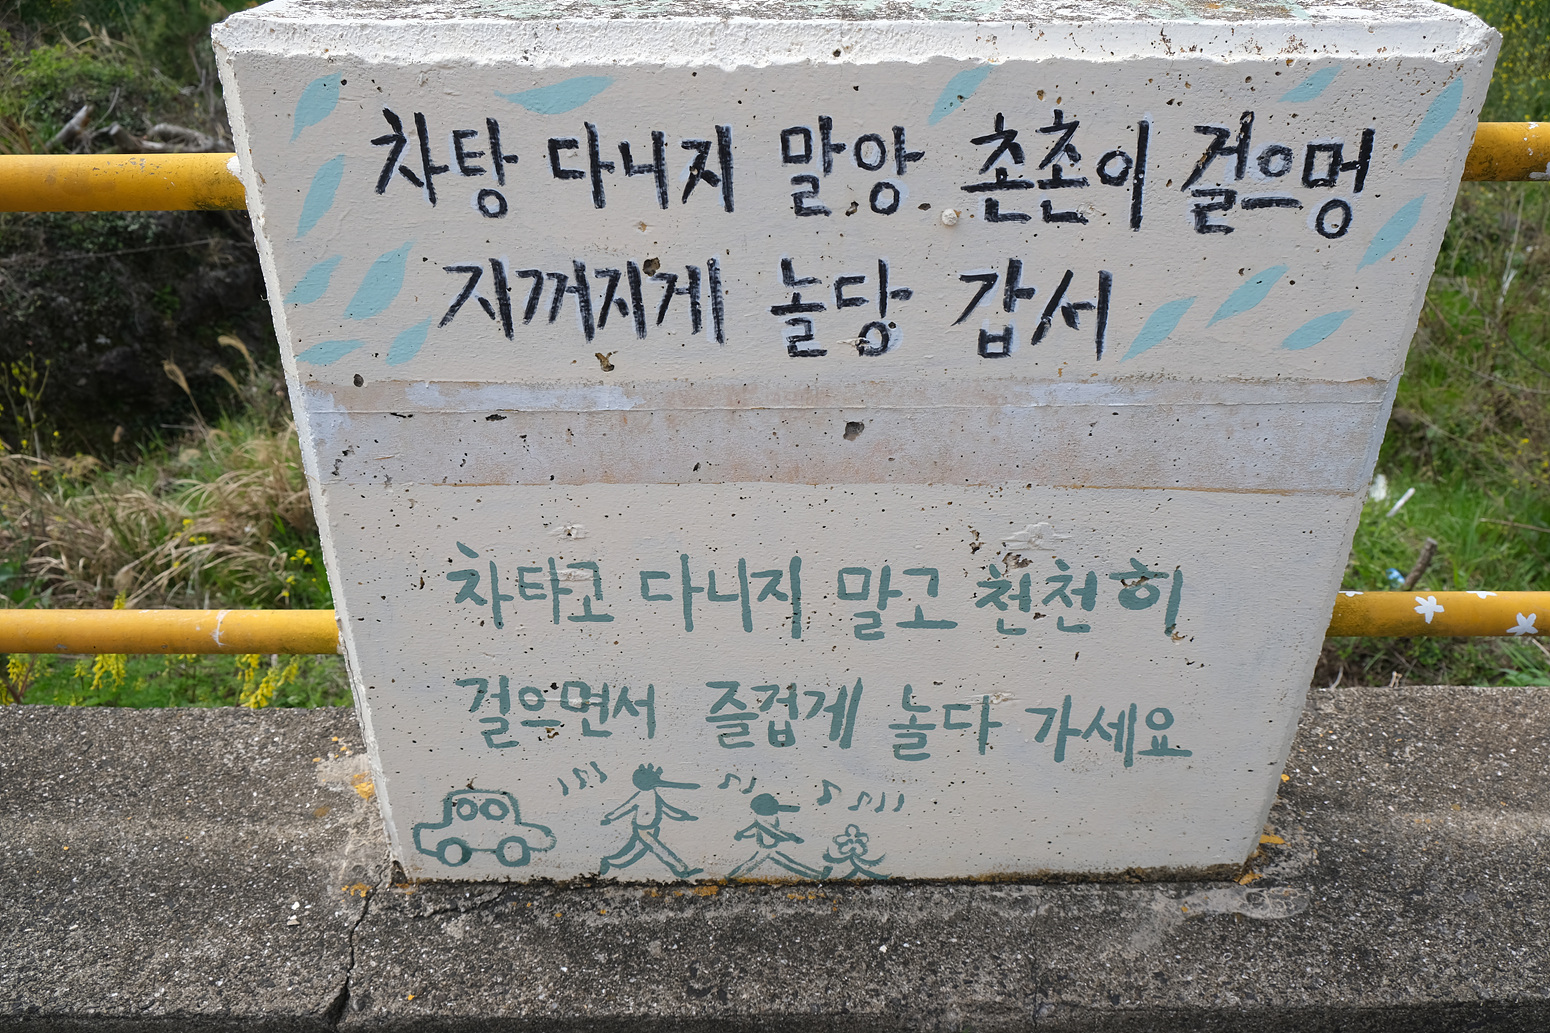 차탕 다니지 말앙 촌촌이 걸으멍
지꺼지게 놀당 갑서
차타고 다니지 말고 천천히
걸으면서 즐겁게 놀다 가세요